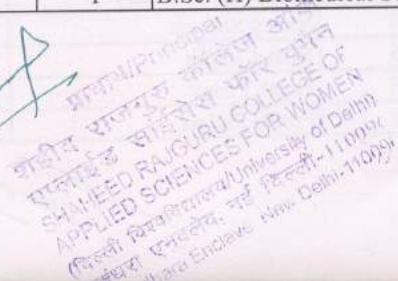 B.Sc. (H) Biomedical
प्राचार्य/Principal
शहीद राजगुरु कॉलेज ऑफ
एप्लाईड साईंसेस फॉर वुमेन
SHAHEED RAJGURU COLLEGE OF
APPLIED SCIENCES FOR WOMEN
(दिल्ली विश्वविद्यालय/University of Delhi)
एनक्लेव, नई दिल्ली-11009
Enclave New Delhi-11009